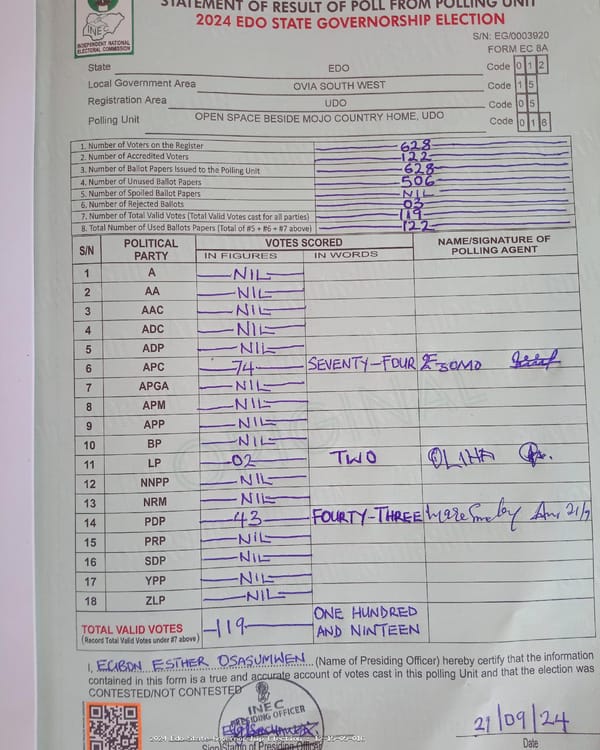 STATEMENT OF RESULT OF POLL FROM POLLING UNIT
2024 EDO STATE GOVERNORSHIP ELECTION
INEC
INDEPENDENT NATIONAL
ELECTORAL COMMISSION
S/N: EG/0003920
FORM EC 8A
State EDO Code 0 1 2
Local Government Area OVIA SOUTH WEST Code 1 5
Registration Area UDO Code 0 5
Polling Unit OPEN SPACE BESIDE MOJO COUNTRY HOME, UDO Code 0 1 6
1. Number of Voters on the Register 628
2. Number of Accredited Voters 122
3. Number of Ballot Papers Issued to the Polling Unit 628
4. Number of Unused Ballot Papers 506
5. Number of Spoiled Ballot Papers NIL
6. Number of Rejected Ballots 03
7. Number of Total Valid Votes (Total Valid Votes cast for all parties) 119
8. Total Number of Used Ballots Papers (Total of #5 + #6 + #7 above) 122
S/N POLITICAL PARTY VOTES SCORED NAME/SIGNATURE OF POLLING AGENT
IN FIGURES IN WORDS
1 A NIL
2 AA NIL
3 AAC NIL
4 ADC NIL
5 ADP NIL
6 APC 74 SEVENTY-FOUR
7 APGA NIL
8 APM NIL
9 APP NIL
10 BP NIL
11 LP 02 TWO OLIHA
12 NNPP NIL
13 NRM NIL
14 PDP 43 FOURTY-THREE
15 PRP NIL
16 SDP NIL
17 YPP NIL
18 ZLP NIL
ORIGINAL
TOTAL VALID VOTES 119 ONE HUNDRED
(Record Total Valid Votes under #7 above) AND NINTEEN
I, ESTHER OSASUMWEN (Name of Presiding Officer) hereby certify that the information
contained in this form is a true and accurate account of votes cast in this polling Unit and that the election was
CONTESTED/NOT CONTESTED
INEC
PRESIDING OFFICER
21/09/24
Date